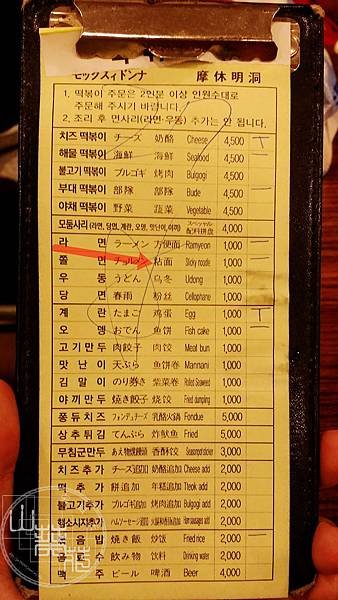 モックスィドンナ 摩休明洞
1. 떡볶이 주문은 2인분 이상 인원수대로
주문해 주시기 바랍니다.
2. 조리 후 면사리(라면·우동) 추가는 안 됩니다.
치즈 떡볶이 チーズ 奶酪 Cheese 4,500 T
해물 떡볶이 海鮮 海鮮 Seafood 4,500
불고기 떡볶이 プルゴギ 烤肉 Bulgogi 4,500
부대 떡볶이 部隊 部隊 Bude 4,500 一
야채 떡볶이 野菜 蔬菜 Vegetable 4,500
모둠사리 (라면, 당면, 계란, 오뎅, 맛난이, 야끼) スペシャル 配料拼盘 4,000
라면 ラーメン 方便面 Ramyeon 1,000 一
쫄면 チョルメン 粘面 Sticky noodle 1,000
우동 うどん 乌冬 Udong 1,000
당면 春雨 粉丝 Cellophane 1,000
계란 たまご 鸡蛋 Egg 1,000 T
오뎅 おでん 鱼饼 Fish cake 1,000 一
고기만두 肉餃子 肉饺 Meat bun 1,000
맛난이 天ぷら 鱼饼卷 Mannani 1,000
김말이 のり巻き 紫菜卷 Rolled Seaweed 1,000
야끼만두 焼き餃子 烧饺 Fried dumpling 1,000
퐁듀치즈 フォンデュチーズ 乳酪火鍋 Fondue 5,000
상추튀김 てんぷら 炸鱿鱼 Fried 5,000
무침군만두 香酥饺 3,000
치즈추가 チーズ追加 奶酪追加 Cheese add 2,000
떡추가 餅追加 年糕追加 Tteok add 2,000
불고기추가 プルゴギ追加 烤肉追加 Bulgogi add 2,000
햄소시지추가 Ham sausages add 2,000
볶음밥 焼き飯 炒饭 Fried rice 2,000 一
음료수 飲み物 饮料 Drinking water 2,000
맥주 ビール 啤酒 Beer 4,000